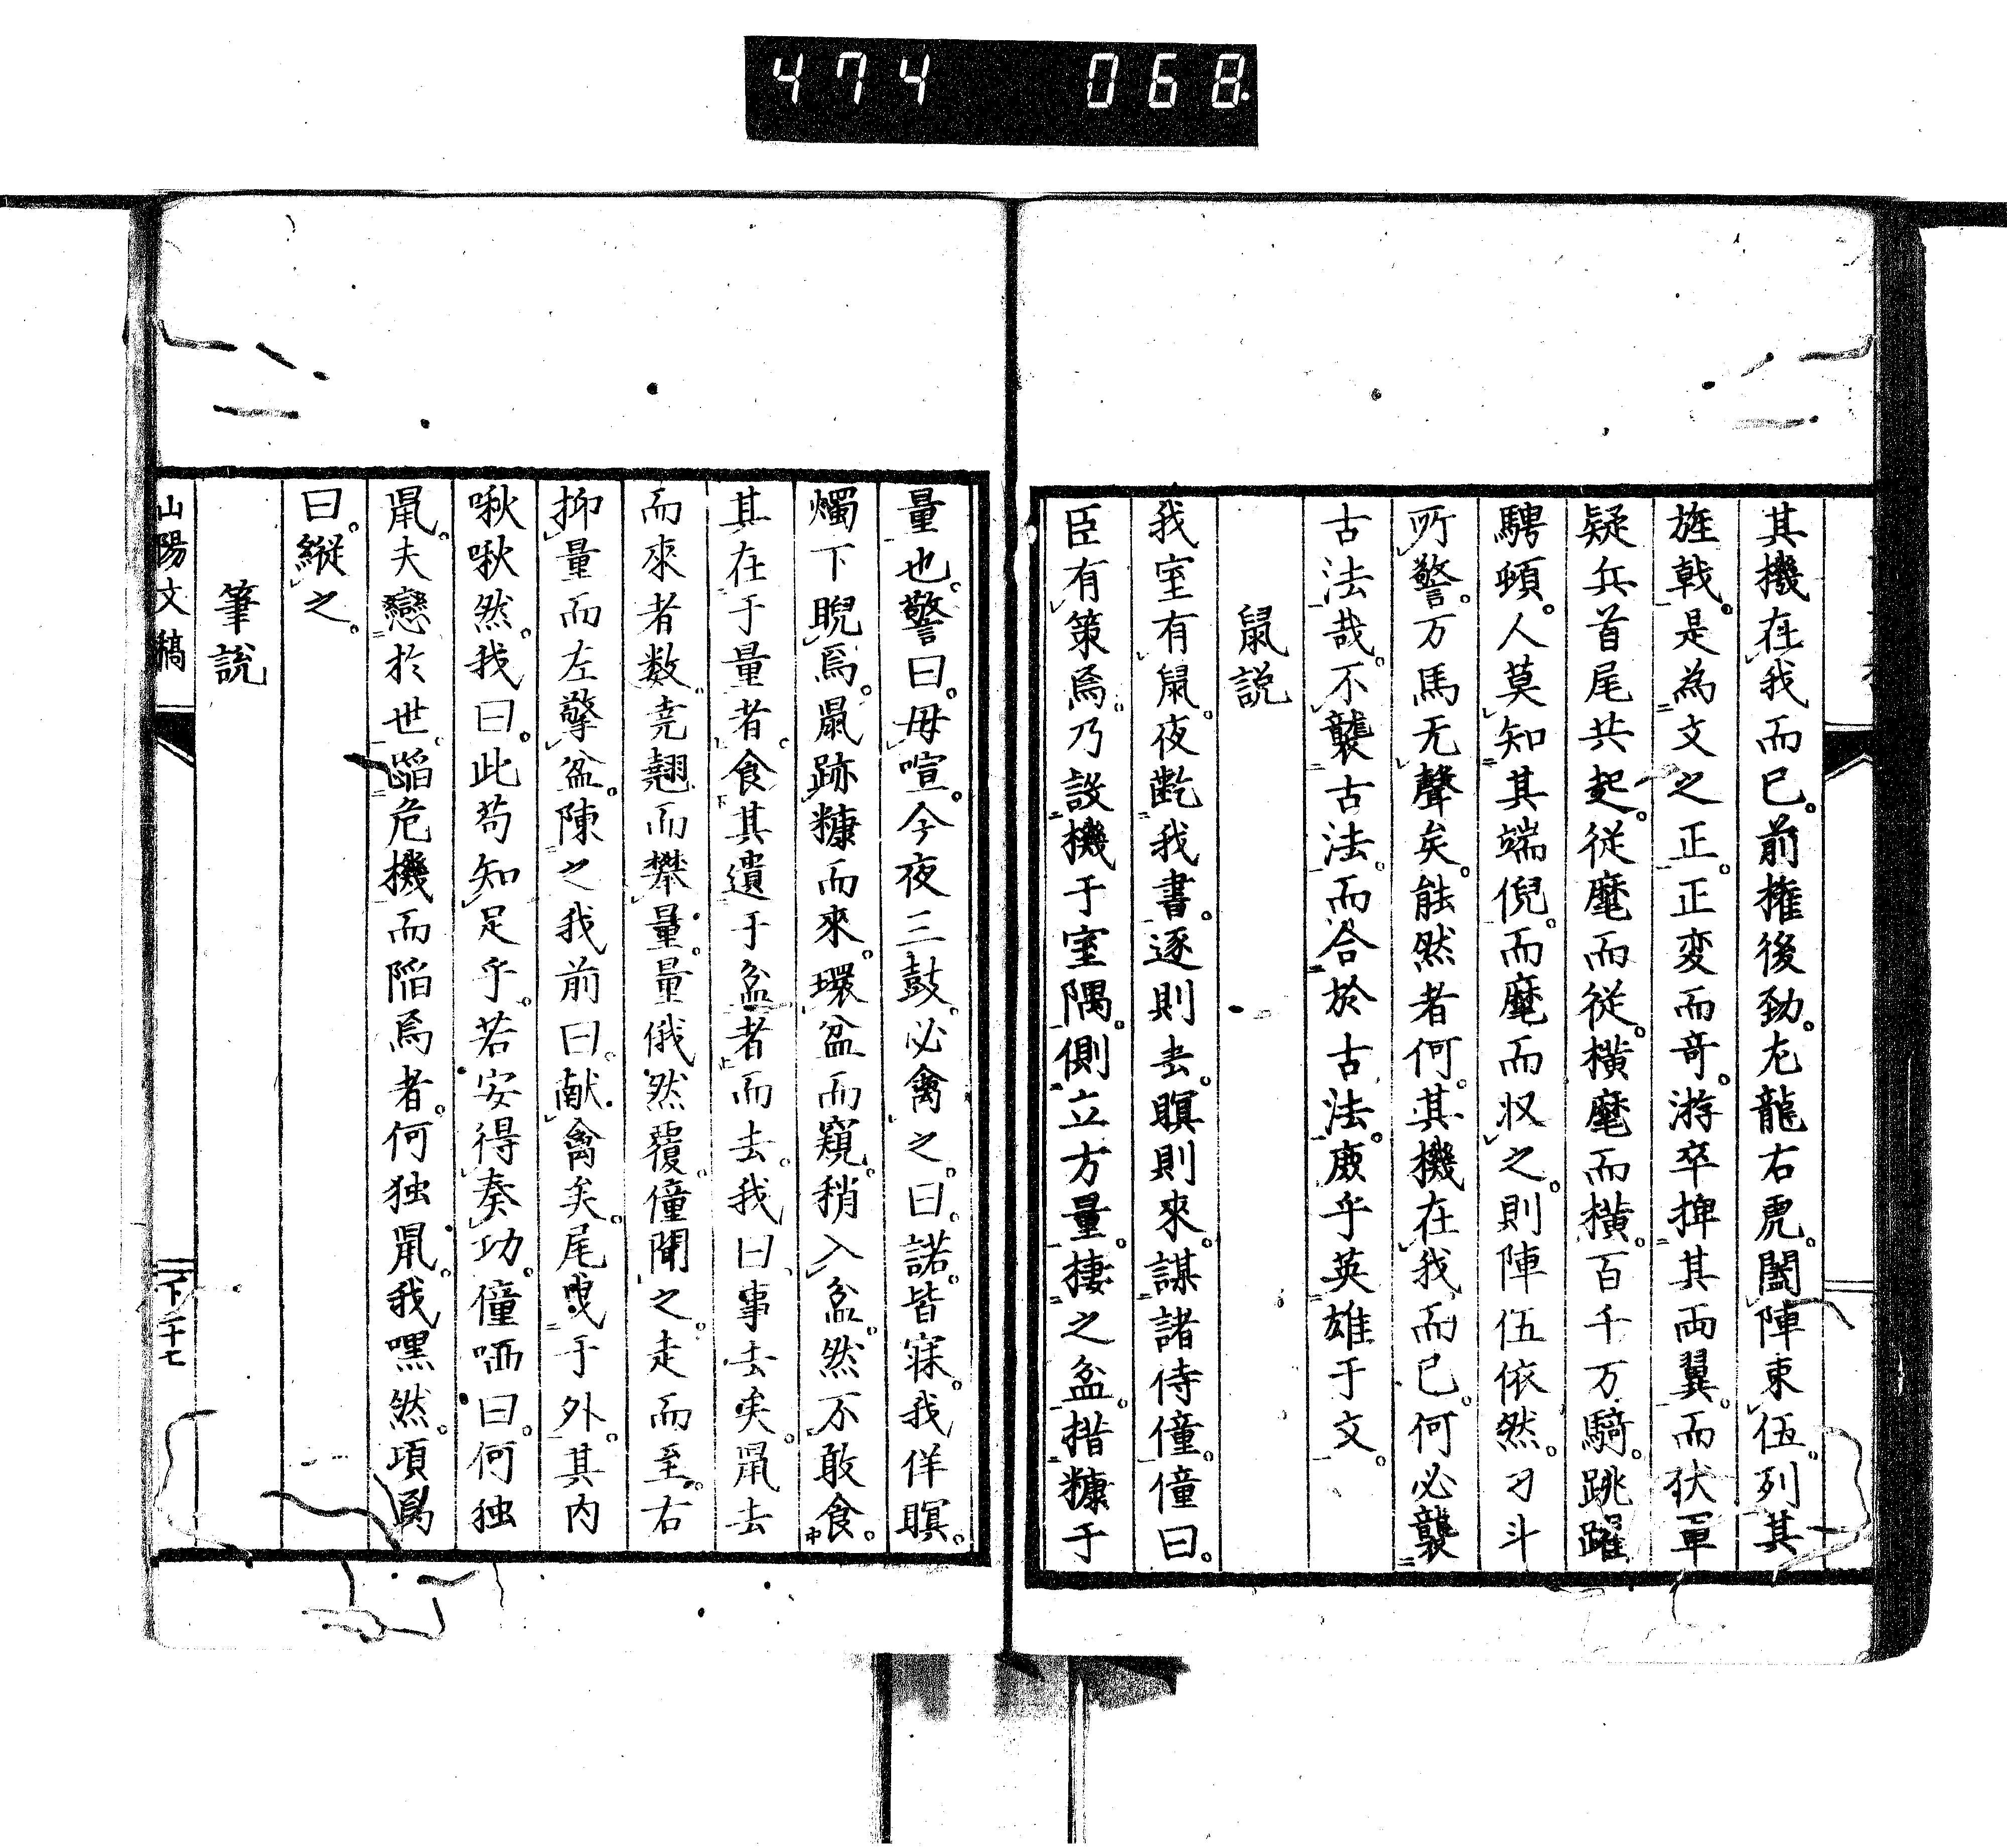 474 068
其機在我而已。前権後勁。左龍右虎。闔陣束伍。列其
旌戟。是為文之正。正変而奇。游卒捭其両翼。而伏軍
疑兵首尾共起。従麾而従。横麾而横。百千万騎。跳躍
騁頓。人莫知其端倪。而麾而収之。則陣伍依然。刁斗
所警。万馬无聲矣。能然者何。其機在我而已。何必襲
古法哉。不襲古法。而合於古法。庶乎英雄于文。
鼠説
我室有鼠。夜齕我書。逐則去。瞑則來。謀諸侍僮。僮曰。
臣有策焉。乃設機于室隅。側立方量。棲之盆。措糠于
量也。警曰。毋喧。今夜三鼓。必禽之。曰。諾。皆寐。我佯瞑。
燭下睨焉。鼠跡糠而來。環盆而窺。稍入盆。然不敢食。
其在于量者。食其遺于盆者而去。我曰。事去矣。鼠去
而來者数。尭翹而攀量。量俄然覆。僮聞之。走而至。右
抑量而左擎盆。陳之我前曰。献禽矣。尾曳于外。其内
啾啾然。我曰。此苟知足乎。若安得奏功。僮哂曰。何独
鼠。夫戀於世。蹈危機而陥焉者。何独鼠。我嘿然。項焉
曰。縦之。
筆説
山陽文稿
下二十七